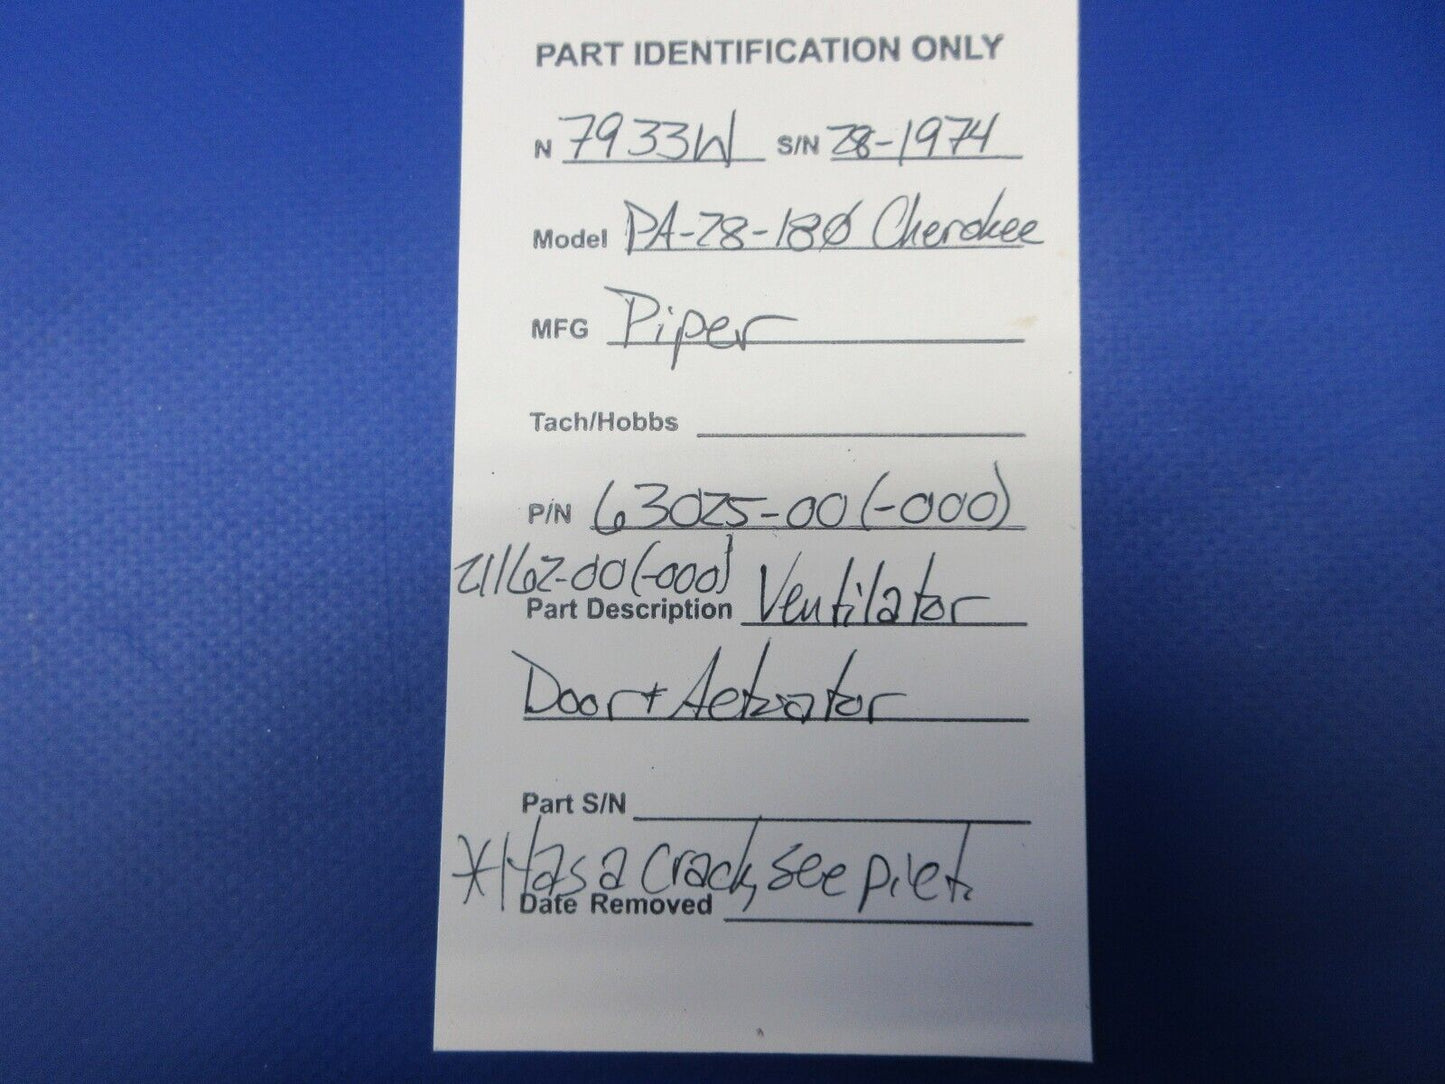 PART IDENTIFICATION ONLY
N 7933W S/N 28-1974
Model PA-28-180 Cherokee
MFG Piper
Tach/Hobbs
P/N 63025-00 (-000)
21162-00 (-000)
Part Description Ventilator
Door + Actuator
Part S/N
*Has a crack, see pict.
Date Removed